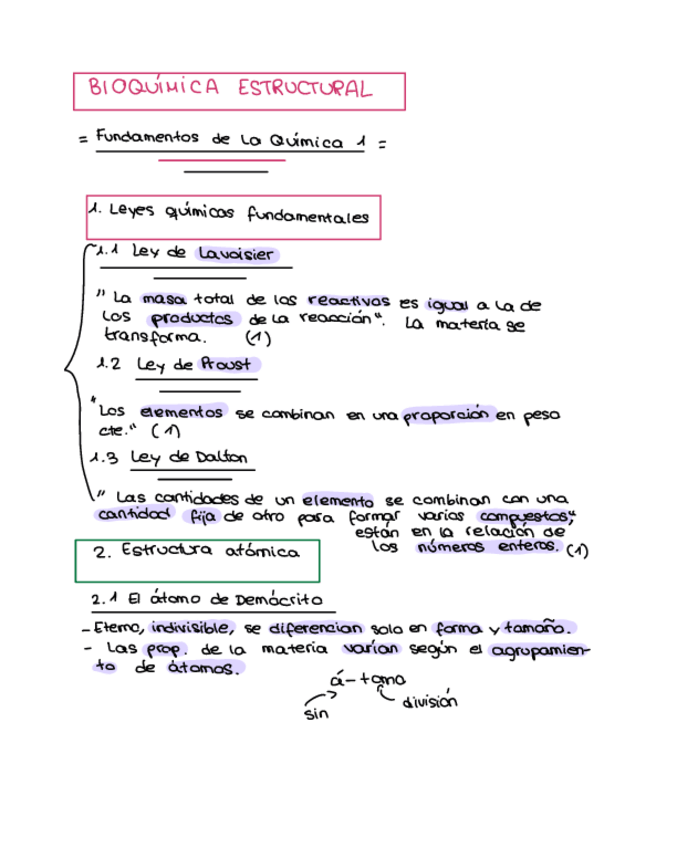 BIOQUÍMICA ESTRUCTURAL
= Fundamentos de La Química 1 =
1. Leyes químicas fundamentales
1.1 Ley de Lavoisier
" La masa total de los reactivos es igual a la de
los productos de la reacción". La materia se
transforma. (1)
1.2 Ley de Proust
"Los elementos se combinan en una proporción en peso
cte." (1)
1.3 Ley de Dalton
" Las cantidades de un elemento se combinan con una
cantidad fija de otro para formar varios compuestos,"
están en la relación de
los números enteros. (1)
2. Estructura atómica
2.1 El átomo de Demócrito
- Eterno, indivisible, se diferencian solo en forma y tamaño.
- Las prop. de la materia varían según el agrupamien-
to de átomos.
á-tomo
sin división